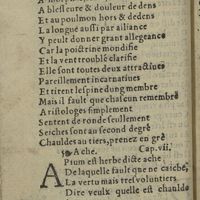 A blesſeure & douleur de dens
Et au poulmon hors & dedens
La longue auſſi par alliance
Y peult donner grant allegeance
Car la poictrine mondifie
Et la vent troublé clarifie
Elle ſont toutes deux attractiues
Pareillement incarnatiues
Et tirent leſpine dung membre
Mais il fault que chaſcun remembre
Ariſtologes ſimplement
Sentent de ronde ſeullement
Seiches ſont au ſecond degré
Chauldes au tiers, prenez en gré
Ache. Cap. vii.
APium eſt herbe dicte ache
De laquelle fault que ne cache,
La vertu mais treſvoluntiers
Dire veulx quelle eſt chaulde